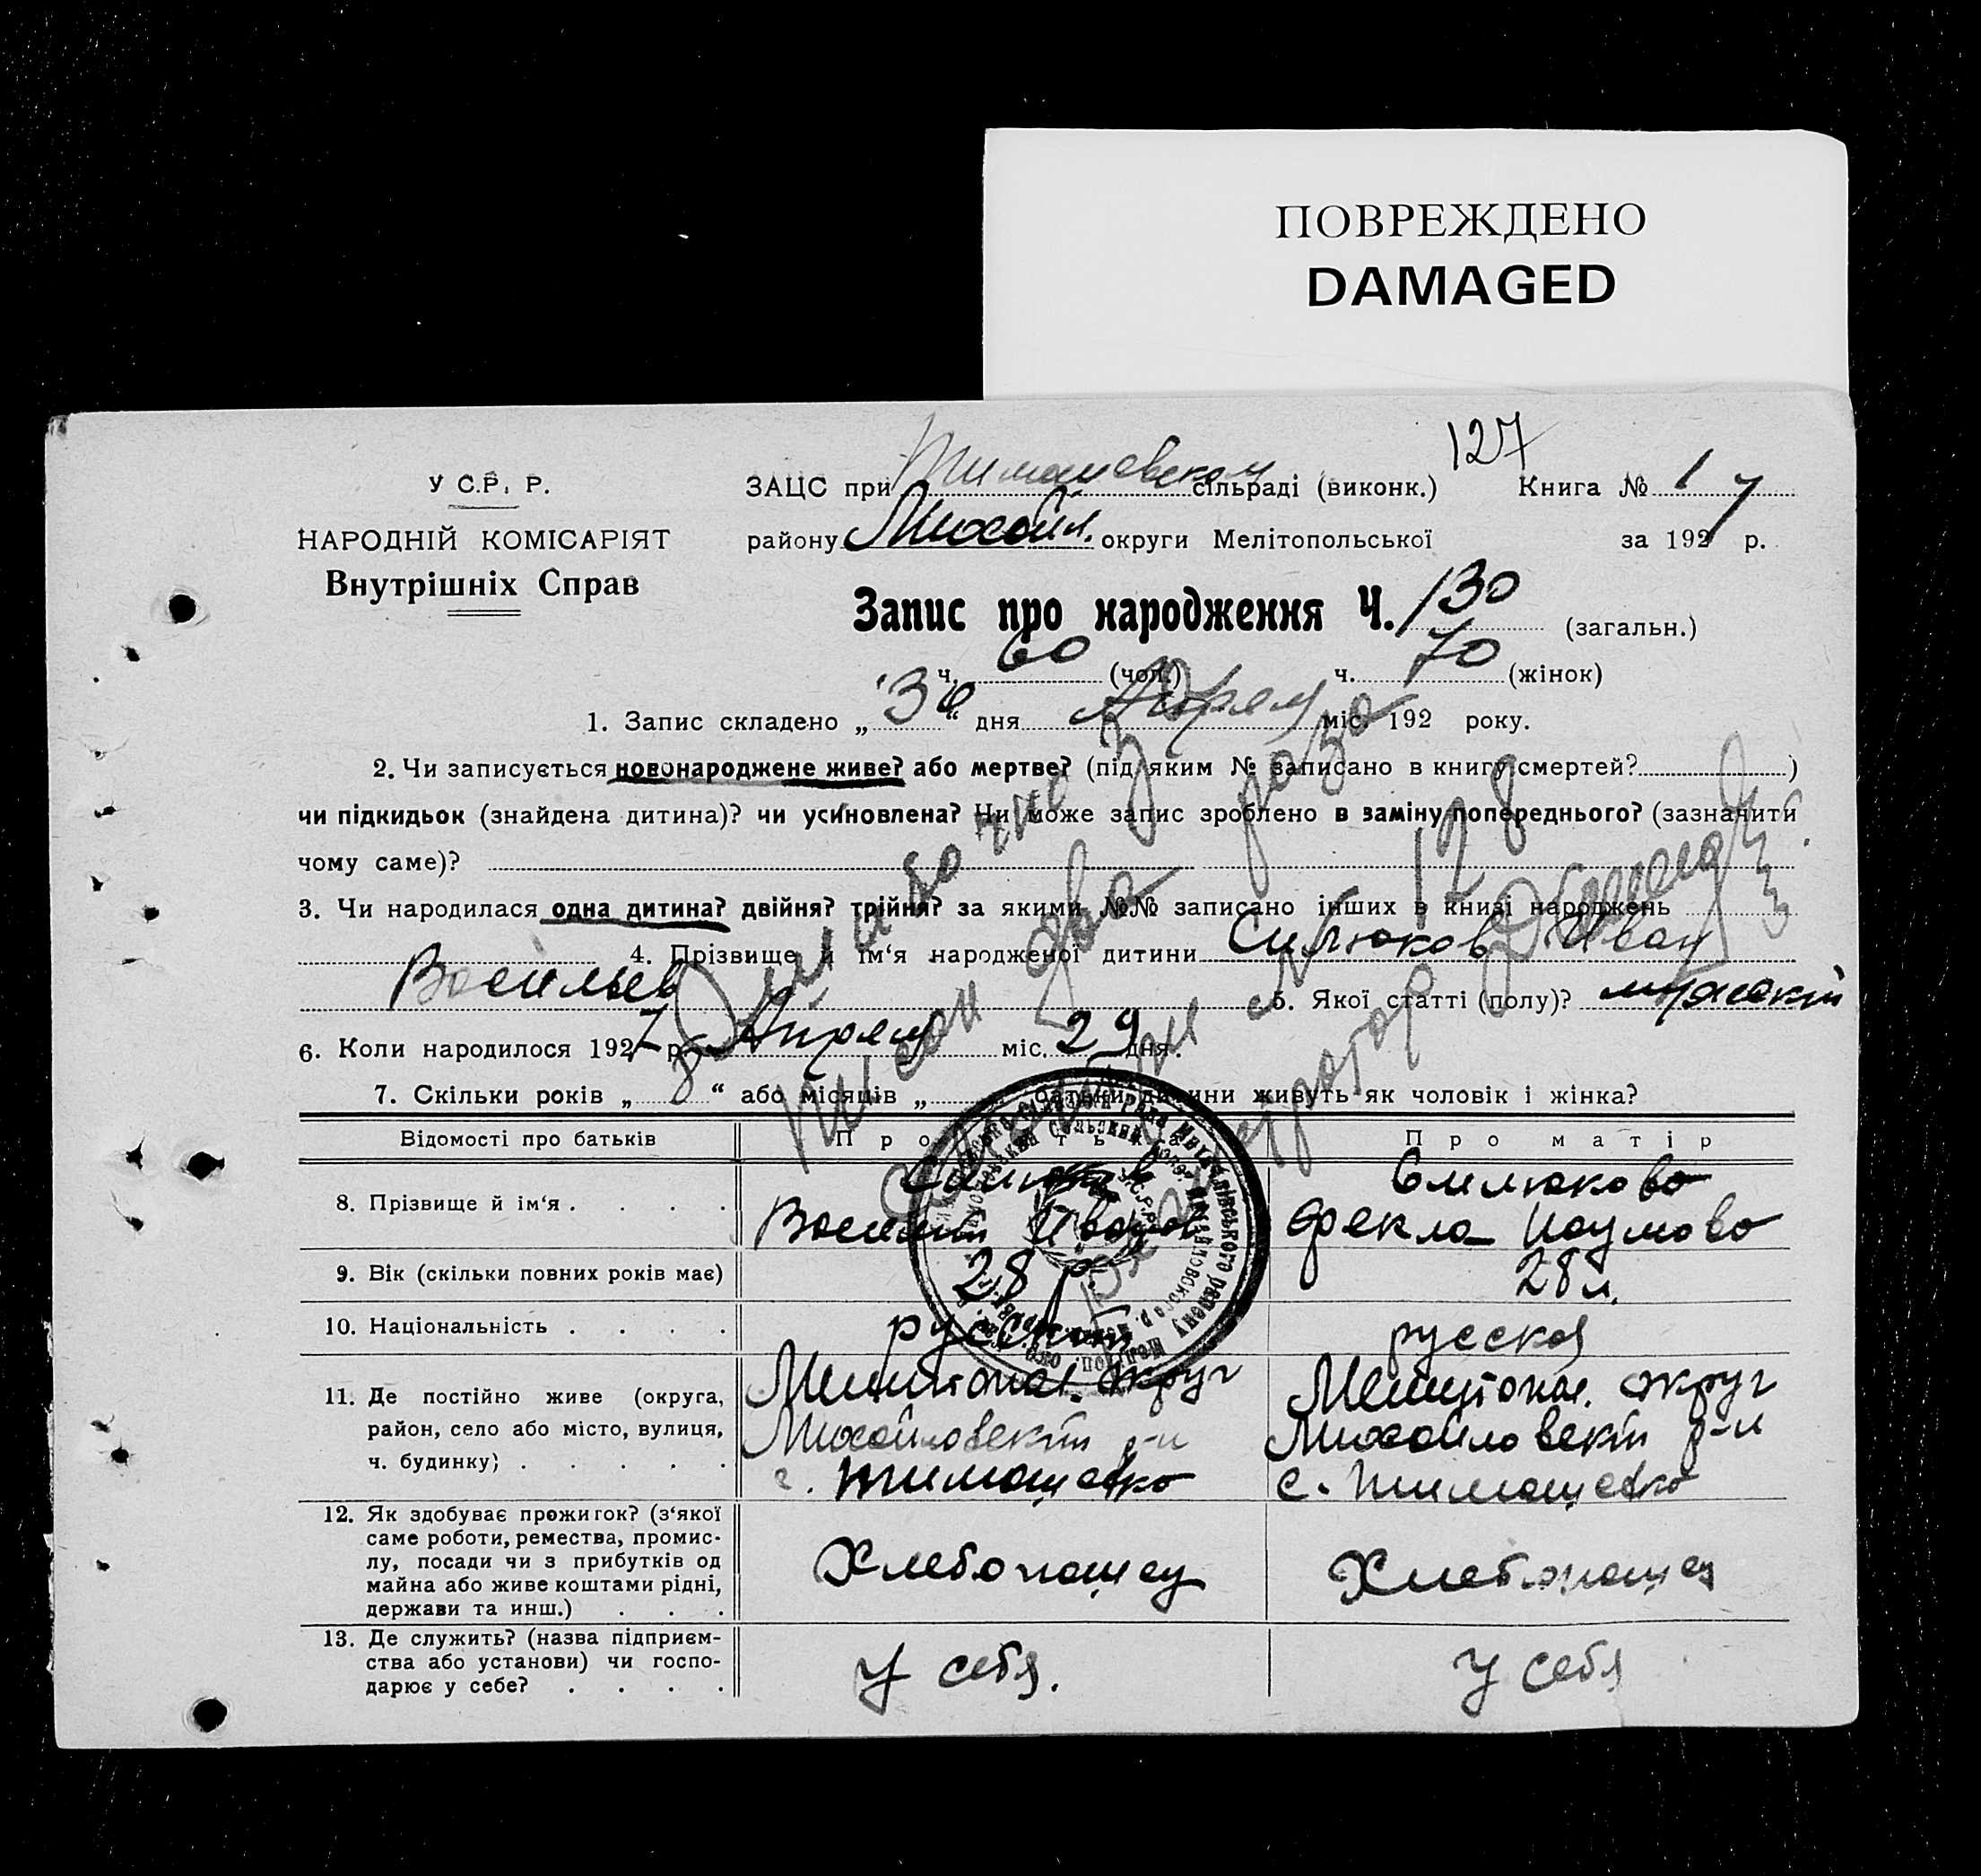 ПОВРЕЖДЕНО
DAMAGED
127
У С.Р. Р.
ЗАЦС при Тимашевском сільраді (виконк.) Книга № 1
НАРОДНІЙ КОМІСАРІЯТ
району Михайл. округи Мелітопольської за 1927 р.
Внутрішніх Справ
Запис про народження Ч. 130 (загальн.)
ч. 60 (чол.) ч. 70 (жінок)
1. Запис складено „30“ дня Апреля міс. 192 року.
2. Чи записується новонароджене живе? або мертве? (під яким № записано в книгу смертей? )
чи підкидьок (знайдена дитина)? чи усиновлена? Чи може запис зроблено в заміну попереднього? (зазначити
чому саме)?
3. Чи народилася одна дитина? двійня? трійня? за якими №№ записано інших в книзі народжень
4. Прізвище й ім'я народженої дитини Силюков Иван
Васильев 5. Якої статті (полу)? мужской
6. Коли народилося 1927 р. Апреля міс. 29 дня.
7. Скільки років „ 8 “ або місяців „ батьки дитини живуть як чоловік і жінка?
Відомості про батьків Про батька Про матір
8. Прізвище й ім'я . . . . Силюков Василий Иванов Силюкова Фекла Наумова
9. Вік (скільки повних років має) 28 28 л.
10. Національність . . . . русский русская
11. Де постійно живе (округа, Мелитопол. округ Мелитопол. округ
район, село або місто, вулиця, Михайловский р-н Михайловский р-н
ч. будинку) . . . . . с. Тимашевка с. Тимашевка
12. Як здобуває прожиток? (з'якої
саме роботи, ремества, промис-
лу, посади чи з прибутків од Хлебопашец Хлебопашец
майна або живе коштами рідні,
держави та инш.) . . .
13. Де служить? (назва підприєм-
ства або установи) чи госпо- у себя. у себя
дарює у себе? . . . .
Ошибочно
писан два раза
смотри № 128